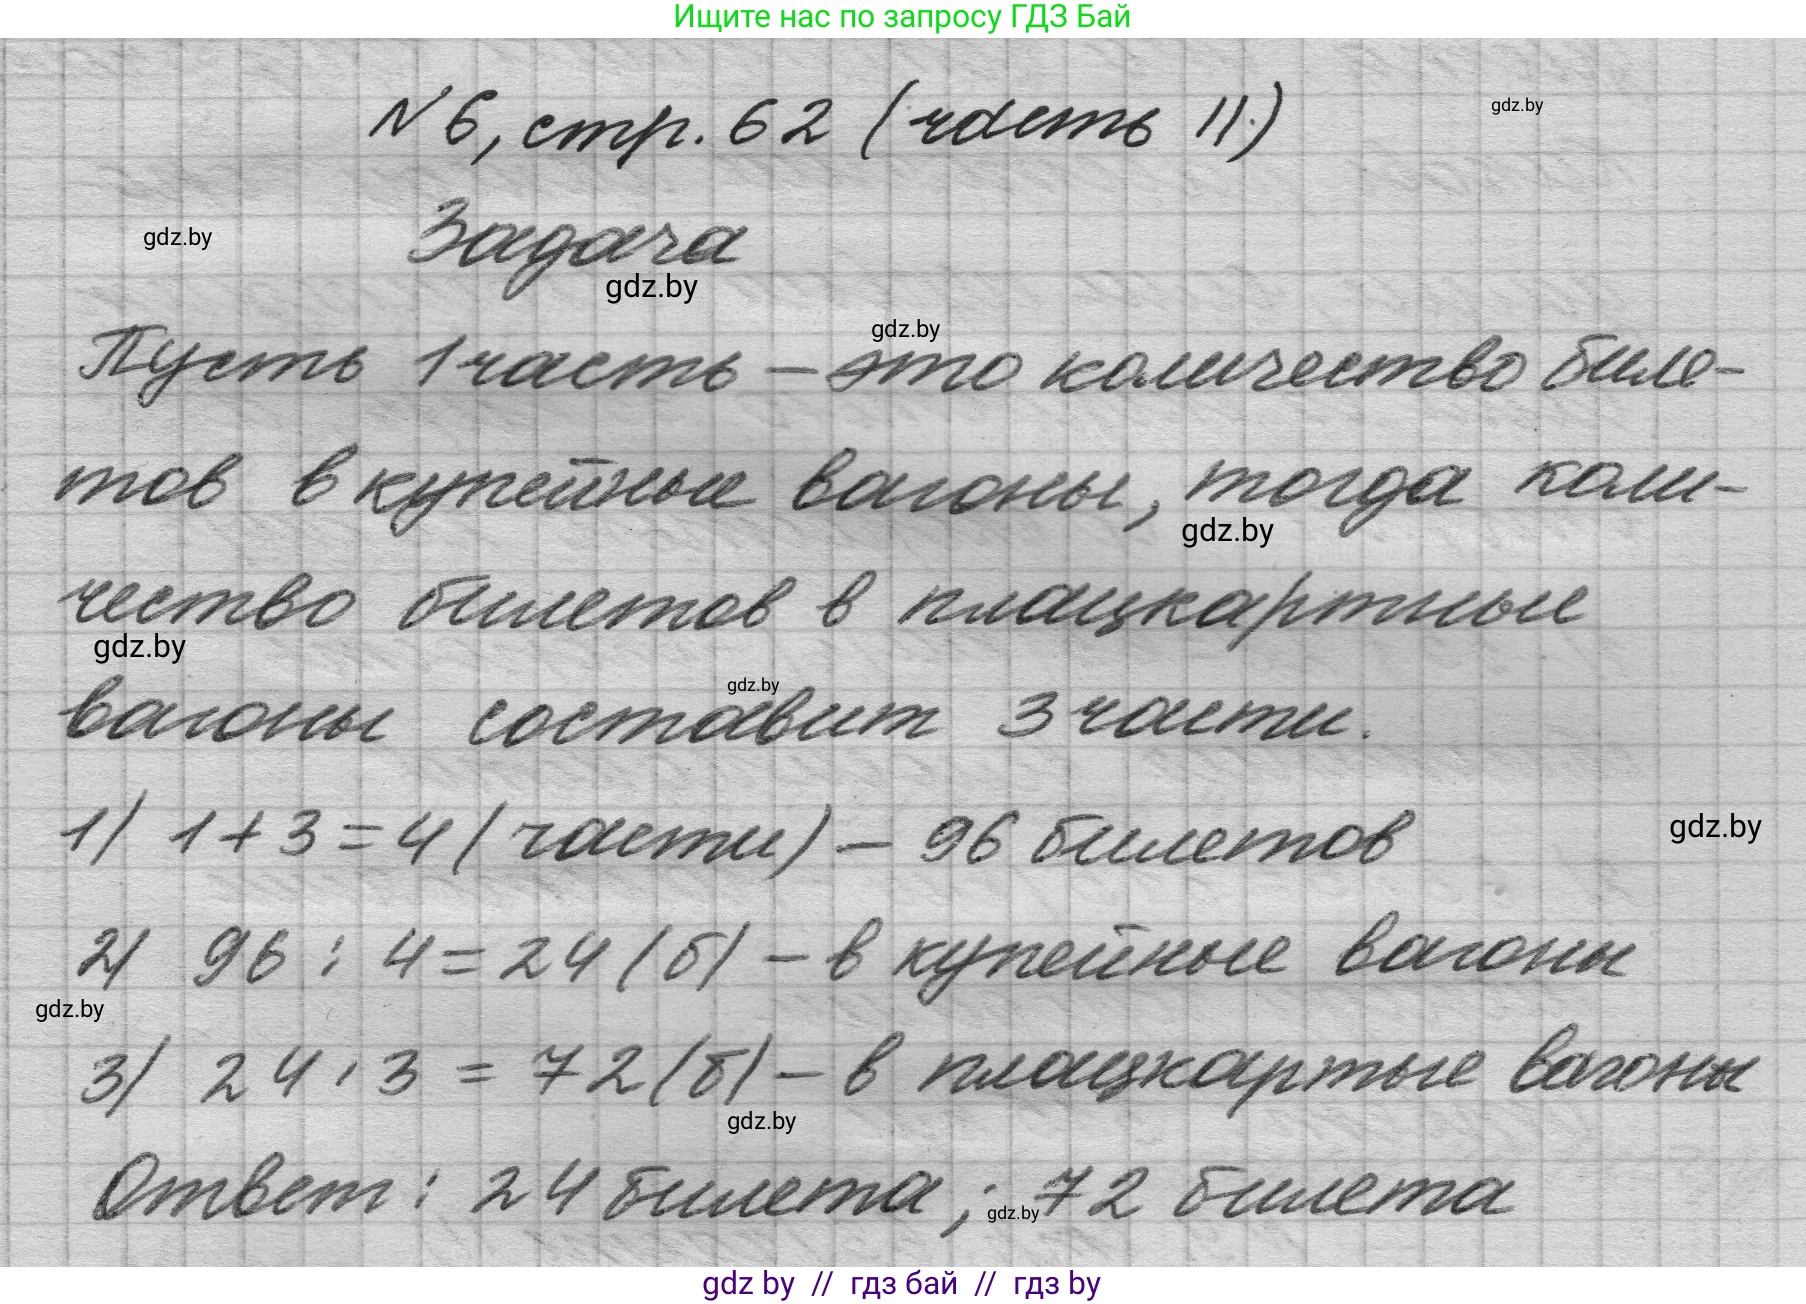 Ищите нас по запросу ГДЗ Бай
№6, стр. 62 (часть II.)
gdz.by
Задача
gdz.by
gdz.by
gdz.by
Пусть 1 часть – это количество биле-
тов в купейные вагоны, тогда коли-
gdz.by
чество билетов в плацкартные
gdz.by
gdz.by
вагоны составит 3 части.
1) 1+3=4 (части) – 96 билетов
gdz.by
2) 96 : 4 = 24 (б) – в купейные вагоны
gdz.by
3) 24 · 3 = 72 (б) – в плацкартые вагоны
gdz.by
Ответ: 24 билета; 72 билета
gdz.by
gdz by // гдз бай // гдз by